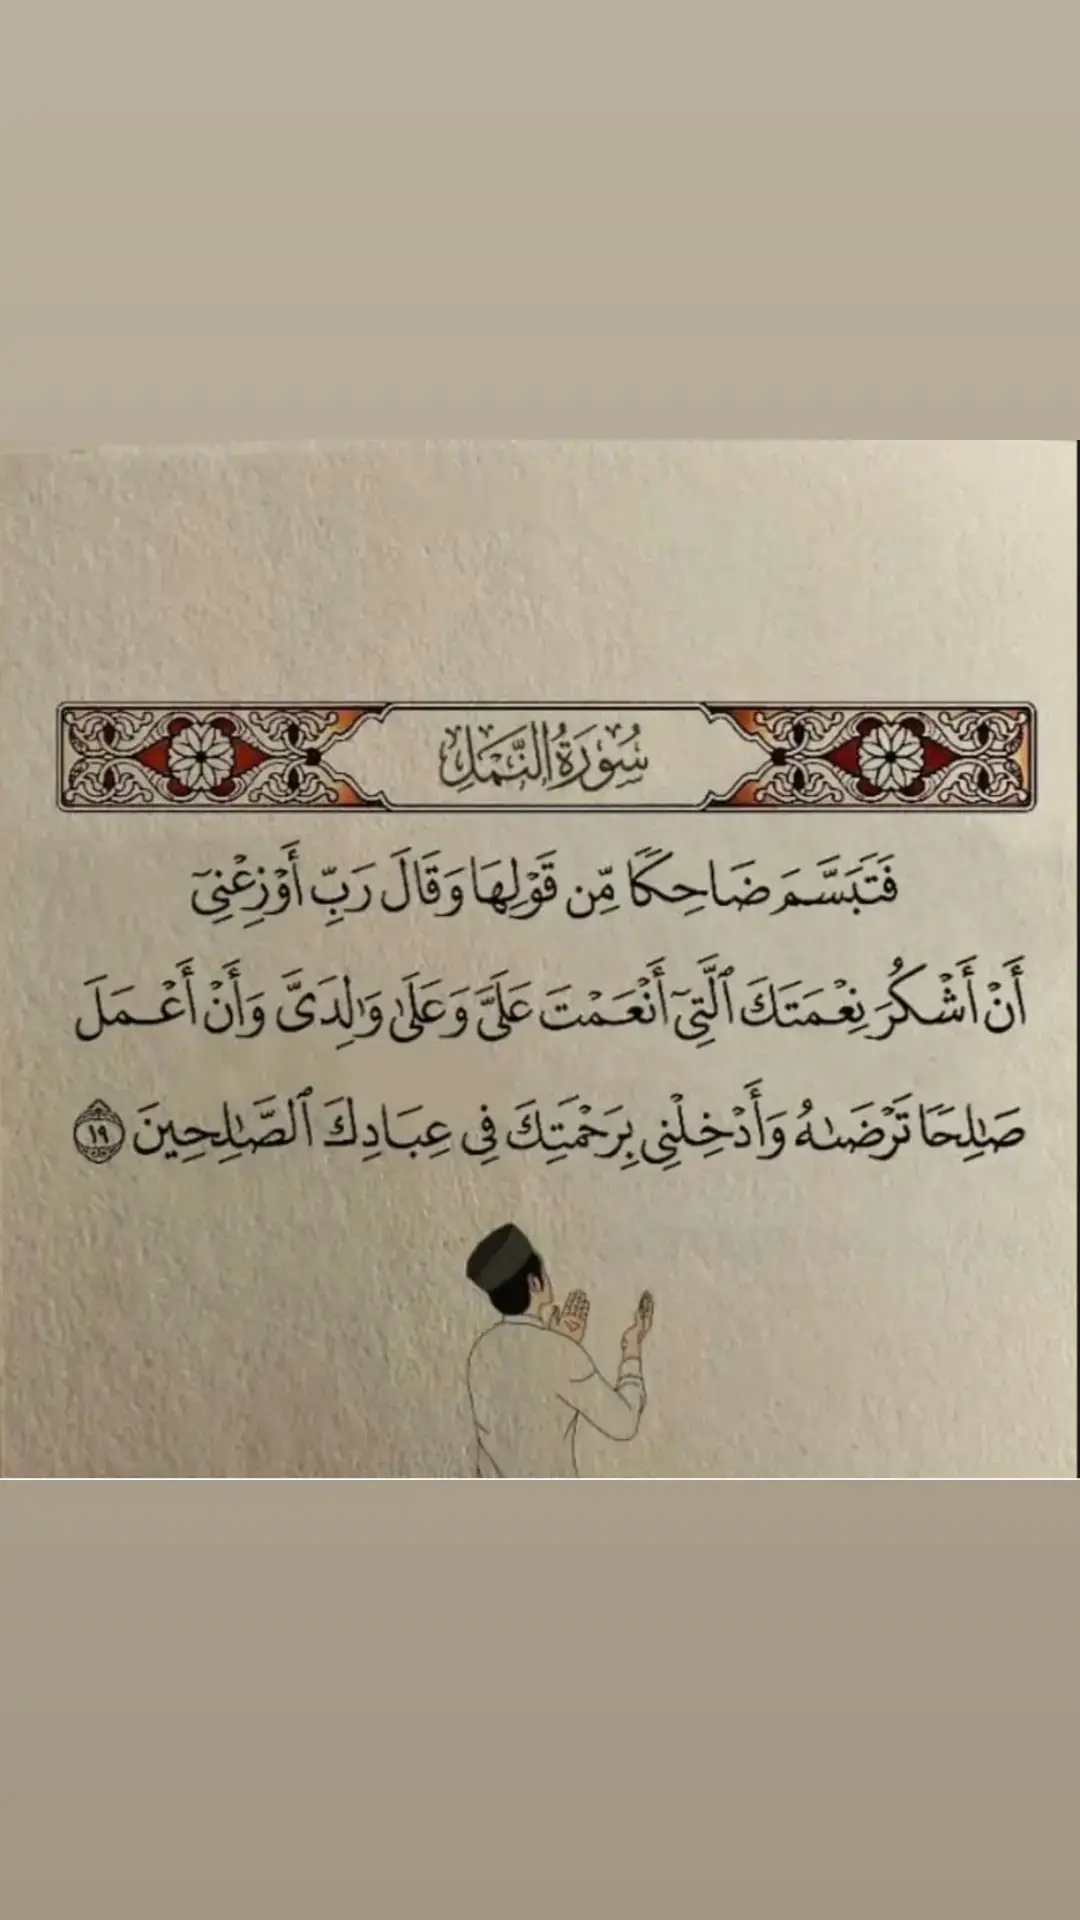 سُورَةُ النَّمْلِ
فَتَبَسَّمَ ضَاحِكًا مِّن قَوْلِهَا وَقَالَ رَبِّ أَوْزِعْنِىٓ
أَنْ أَشْكُرَ نِعْمَتَكَ ٱلَّتِىٓ أَنْعَمْتَ عَلَىَّ وَعَلَىٰ وَٰلِدَىَّ وَأَنْ أَعْمَلَ
صَٰلِحًا تَرْضَىٰهُ وَأَدْخِلْنِى بِرَحْمَتِكَ فِى عِبَادِكَ ٱلصَّٰلِحِينَ ١٩